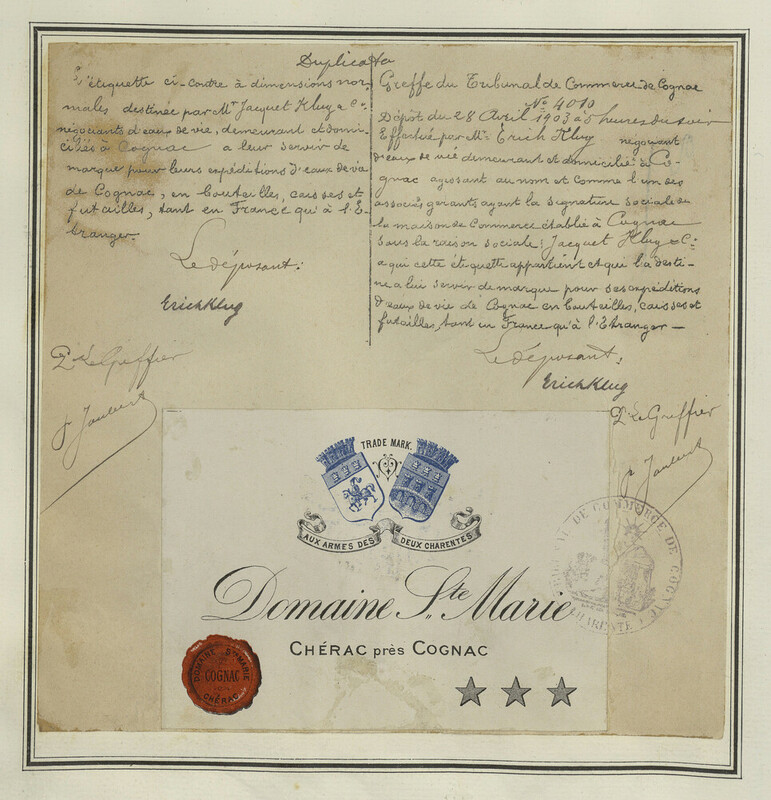 Duplicata
L'étiquette ci-contre à dimensions nor-
males destinée par Mr Jacquet Klug & Cie
négociants d'eaux de vie, demeurant et domi-
ciliés à Cognac a leur servir de
marque pour leurs expéditions d'eaux de vie
de Cognac, en bouteilles, caisses et
futailles, tant en France qu'à l'E-
tranger.
Le déposant:
Erich Klug
Pr Le Greffier
Jaubert
Greffe du Tribunal de Commerce de Cognac
No 4010
Dépôt du 28 Avril 1903 à 5 heures du soir
Effectué par Mr Erich Klug négociant
d'eaux de vie demeurant et domicilié à Co-
gnac agissant au nom et comme l'un des
associés gérants ayant la signature sociale de
la maison de Commerce établie à Cognac
sous la raison sociale: Jacquet Klug & Cie
a qui cette étiquette appartient et qui l'a desti-
née a lui servir de marque pour ses expéditions
d'eaux de vie de Cognac en bouteilles, caisses et
futailles, tant en France qu'à l'Etranger —
Le déposant:
Erich Klug
Pr Le Greffier
Jaubert
TRADE MARK.
AUX ARMES DES DEUX CHARENTES
Domaine Ste Marie
CHÉRAC près COGNAC
DOMAINE STE MARIE
COGNAC
CHÉRAC
TRIBUNAL DE COMMERCE DE COGNAC
CHARENTE